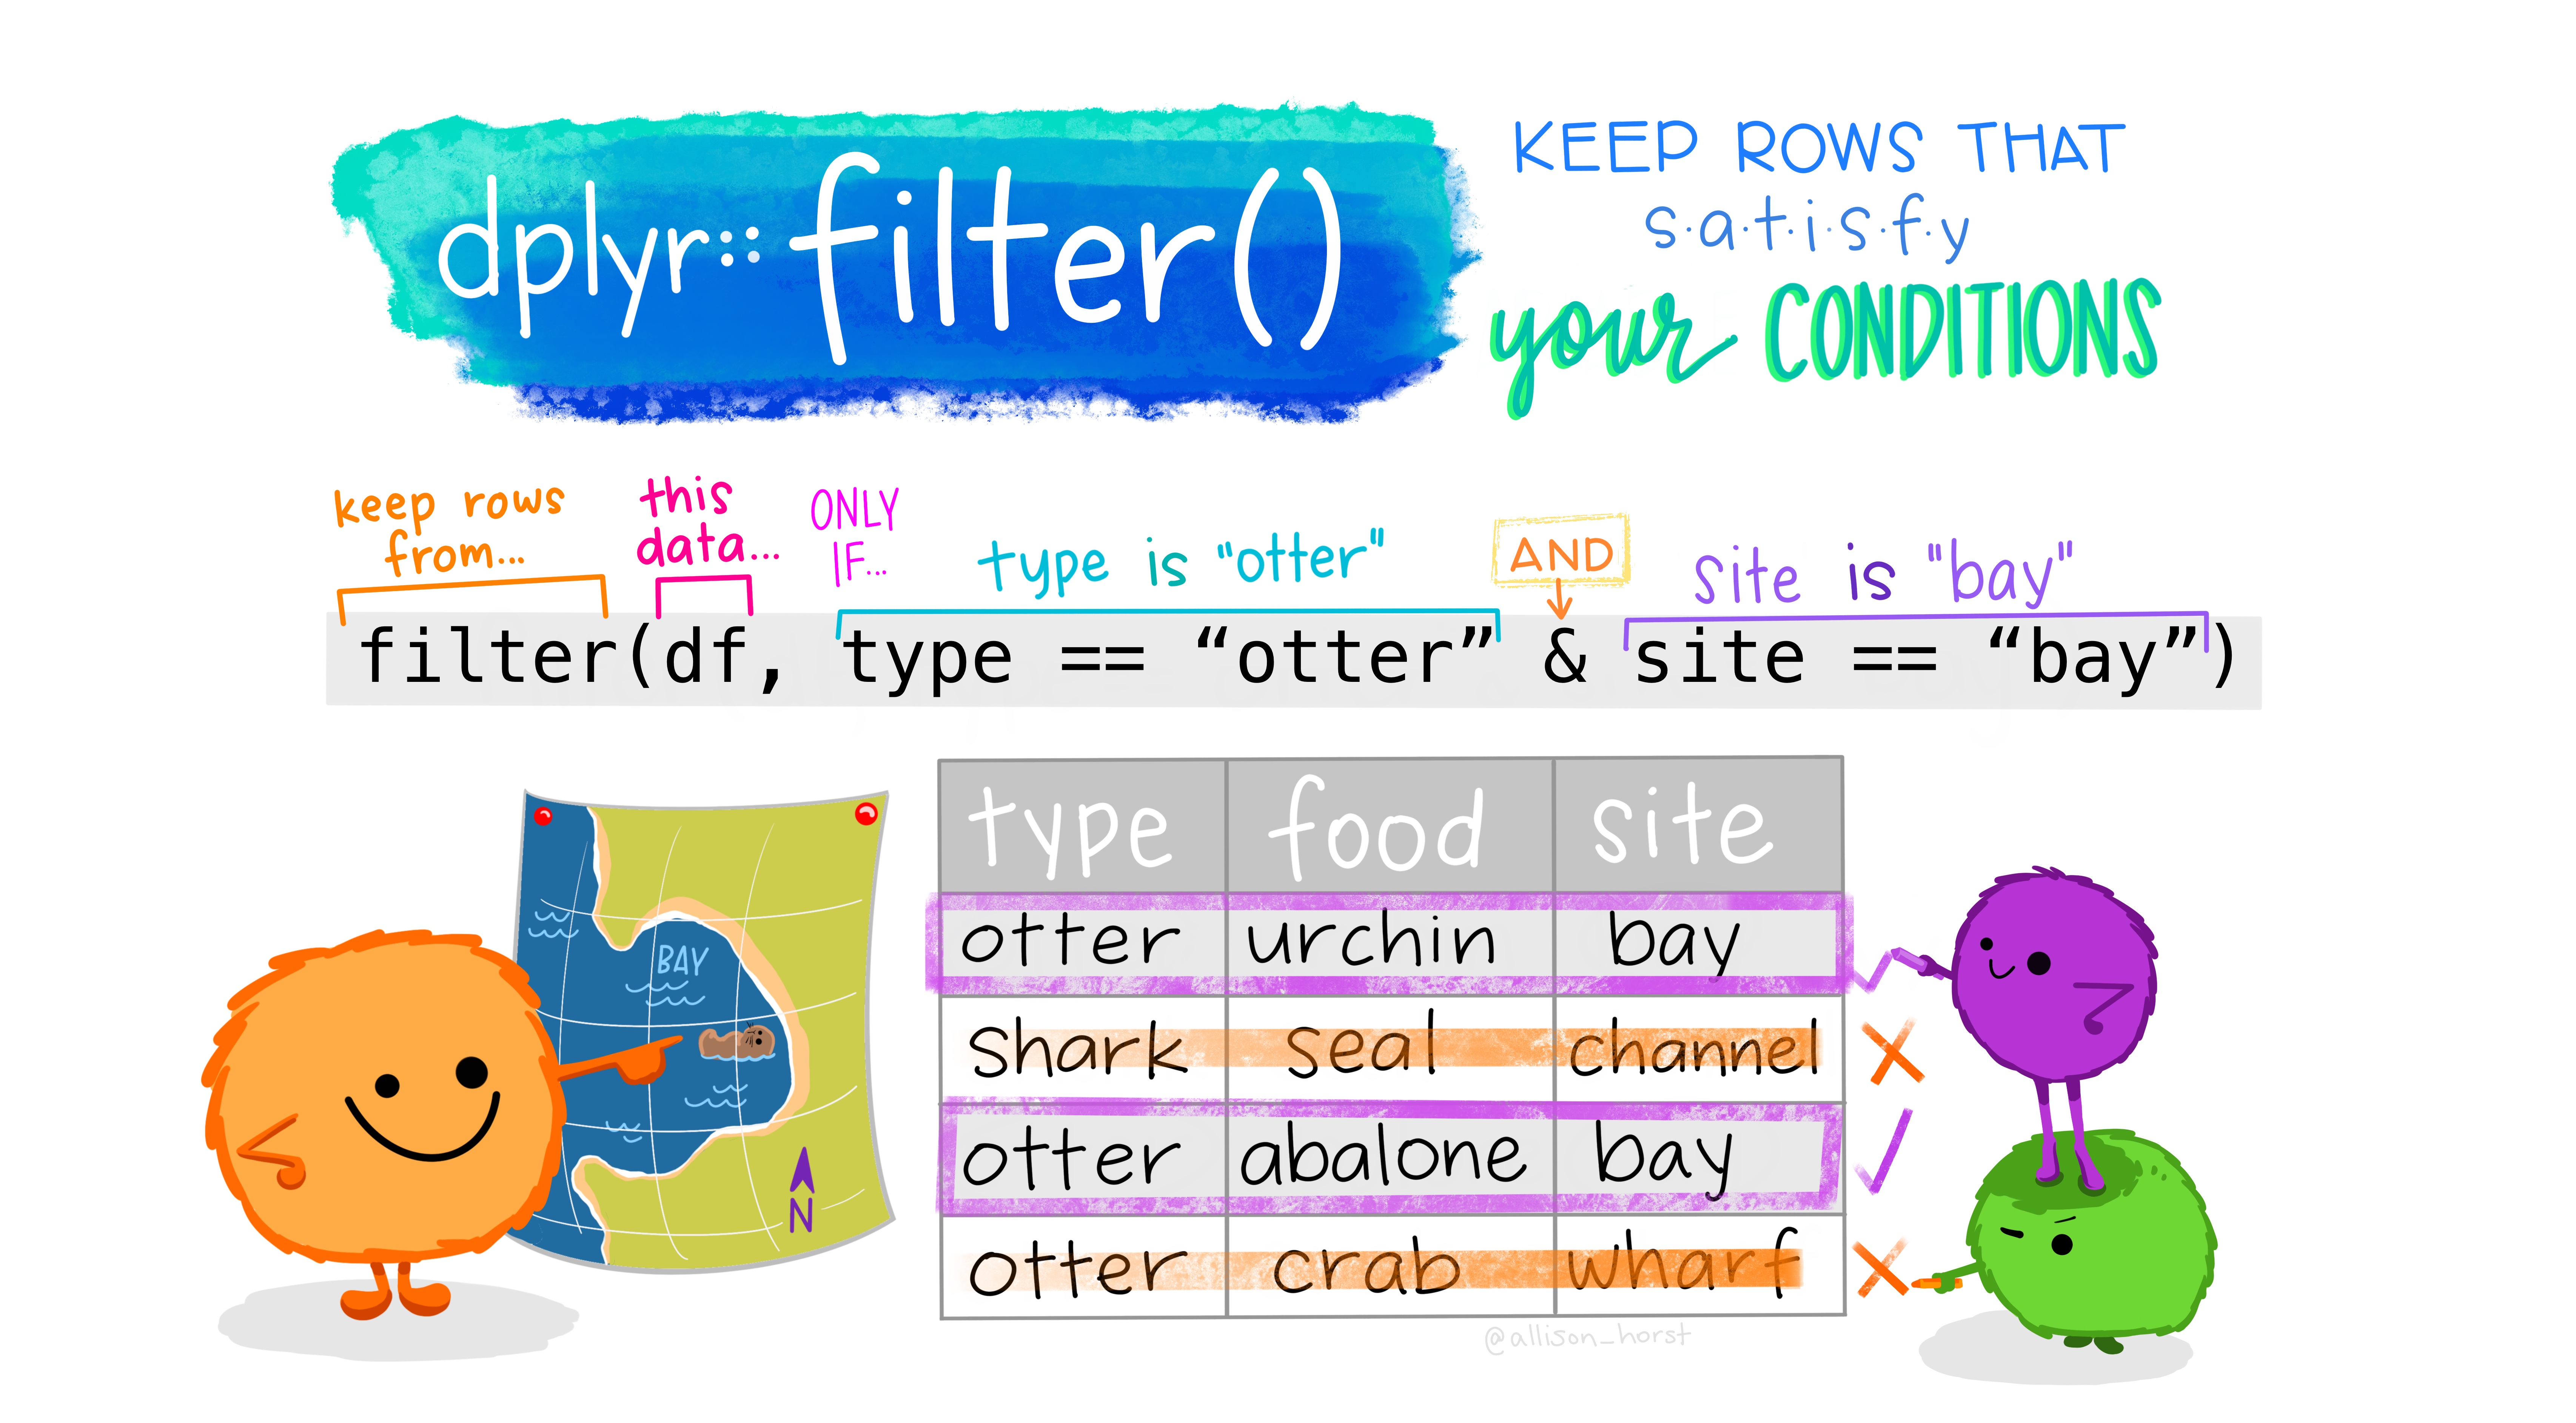 dplyr::filter()
KEEP ROWS THAT
s·a·t·i·s·f·y
your CONDITIONS
keep rows
from...
this
data...
ONLY
IF...
type is "otter"
AND
site is "bay"
filter(df, type == “otter” & site == “bay”)
BAY
N
type food site
otter urchin bay
shark seal channel
otter abalone bay
otter crab wharf
@allison_horst